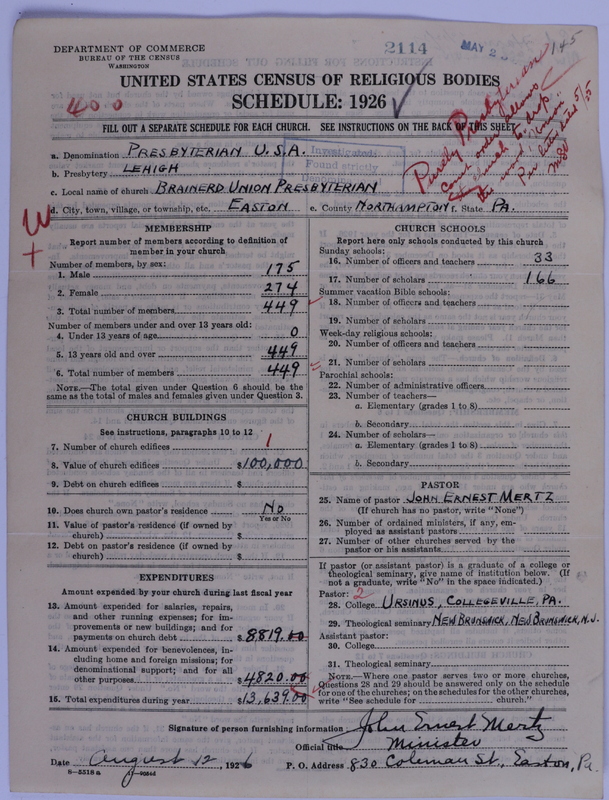 DEPARTMENT OF COMMERCE
BUREAU OF THE CENSUS
WASHINGTON
2114
MAY 2
145
UNITED STATES CENSUS OF RELIGIOUS BODIES
400
SCHEDULE: 1926
FILL OUT A SEPARATE SCHEDULE FOR EACH CHURCH. SEE INSTRUCTIONS ON THE BACK OF THIS SHEET
Purely Presbyterian
Court order allows
church to drop
the word "Union"
Per letter dated 5/25
Investigated:
Found strictly
Denominational
a. Denomination PRESBYTERIAN U.S.A.
b. Presbytery LEHIGH
c. Local name of church BRAINERD UNION PRESBYTERIAN
d. City, town, village, or township, etc. EASTON e. County NORTHAMPTON f. State PA.
W
+
MEMBERSHIP
Report number of members according to definition of member in your church
Number of members, by sex:
1. Male 175
2. Female 274
3. Total number of members 449
Number of members under and over 13 years old:
4. Under 13 years of age 0
5. 13 years old and over 449
6. Total number of members 449
NOTE.—The total given under Question 6 should be the same as the total of males and females given under Question 3.
CHURCH BUILDINGS
See instructions, paragraphs 10 to 12
7. Number of church edifices 1
8. Value of church edifices $100,000
9. Debt on church edifices $
10. Does church own pastor's residence No
Yes or No
11. Value of pastor's residence (if owned by church) $
12. Debt on pastor's residence (if owned by church) $
EXPENDITURES
Amount expended by your church during last fiscal year
13. Amount expended for salaries, repairs, and other running expenses; for improvements or new buildings; and for payments on church debt $8819.00
14. Amount expended for benevolences, including home and foreign missions; for denominational support; and for all other purposes $4820.00
15. Total expenditures during year $13,639.00
CHURCH SCHOOLS
Report here only schools conducted by this church
Sunday schools:
16. Number of officers and teachers 33
17. Number of scholars 166
Summer vacation Bible schools:
18. Number of officers and teachers
19. Number of scholars
Week-day religious schools:
20. Number of officers and teachers
21. Number of scholars
Parochial schools:
22. Number of administrative officers
23. Number of teachers—
a. Elementary (grades 1 to 8)
b. Secondary
24. Number of scholars—
a. Elementary (grades 1 to 8)
b. Secondary
PASTOR
25. Name of pastor JOHN ERNEST MERTZ
(If church has no pastor, write "None")
26. Number of ordained ministers, if any, employed as assistant pastors
27. Number of other churches served by the pastor or his assistants
If pastor (or assistant pastor) is a graduate of a college or theological seminary, give name of institution below. (If not a graduate, write "No" in the space indicated.)
Pastor: 2
28. College URSINUS, COLLEGEVILLE, PA.
29. Theological seminary NEW BRUNSWICK, NEW BRUNSWICK, N.J.
Assistant pastor:
30. College
31. Theological seminary
NOTE.—Where one pastor serves two or more churches, Questions 28 and 29 should be answered only on the schedule for one of the churches; on the schedules for the other churches, write "See schedule for church."
Signature of person furnishing information John Ernest Mertz
Official title Minister
Date August 12, 1926 P. O. Address 830 Coleman St., Easton, Pa.
8—5518a